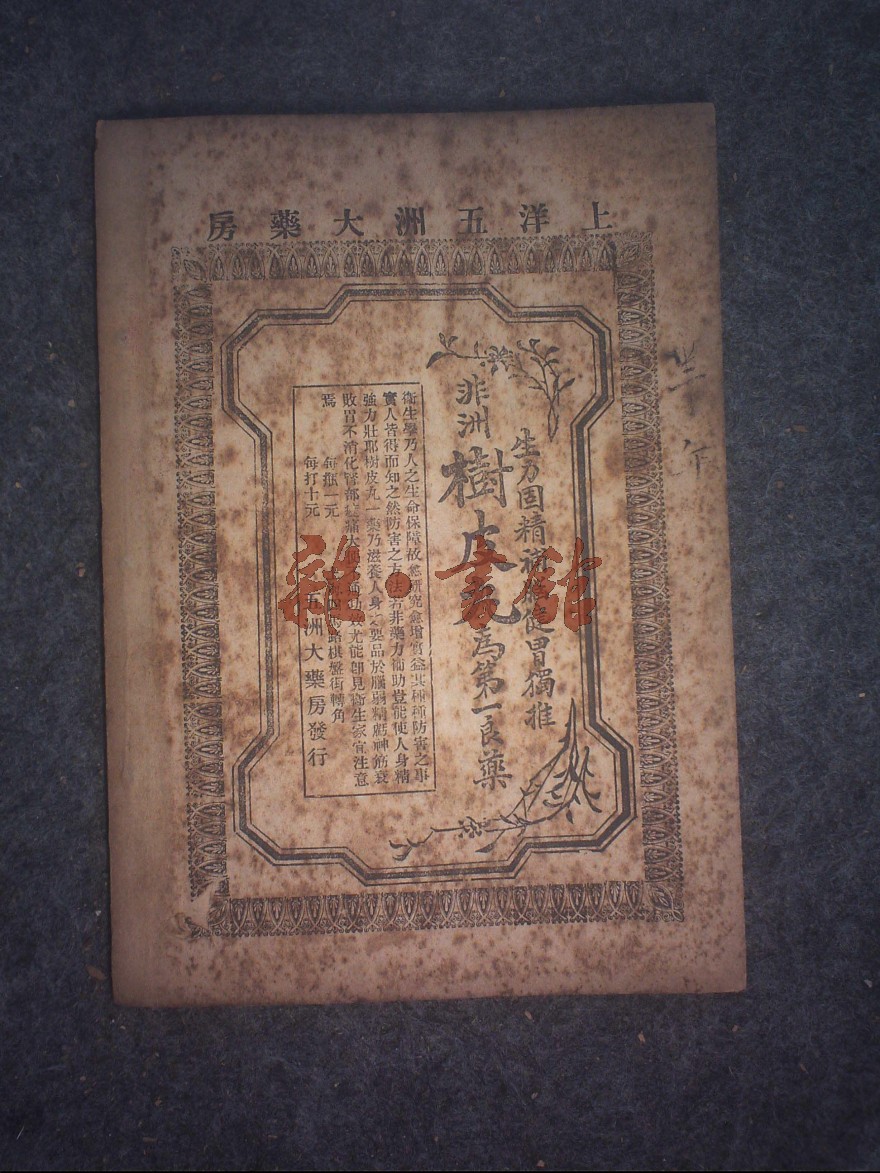 上洋五洲大藥房
生力固精補腦健胃獨推
非洲樹皮丸為第一良藥
衛生學乃人之生命保障故愈研究愈增實益其種種防害之事
實人皆得而知之然防害之方法若非藥力補助豈能使人身精
強力壯耶樹皮丸一藥乃滋養人身之要品於腦弱精虧神筋衰
敗胃不消化腎部 痛大便不 功 尤能朝見衛生家宜注意
焉 每瓶一元 馬路棋盤街轉角
每打十元 五洲大藥房發行
年